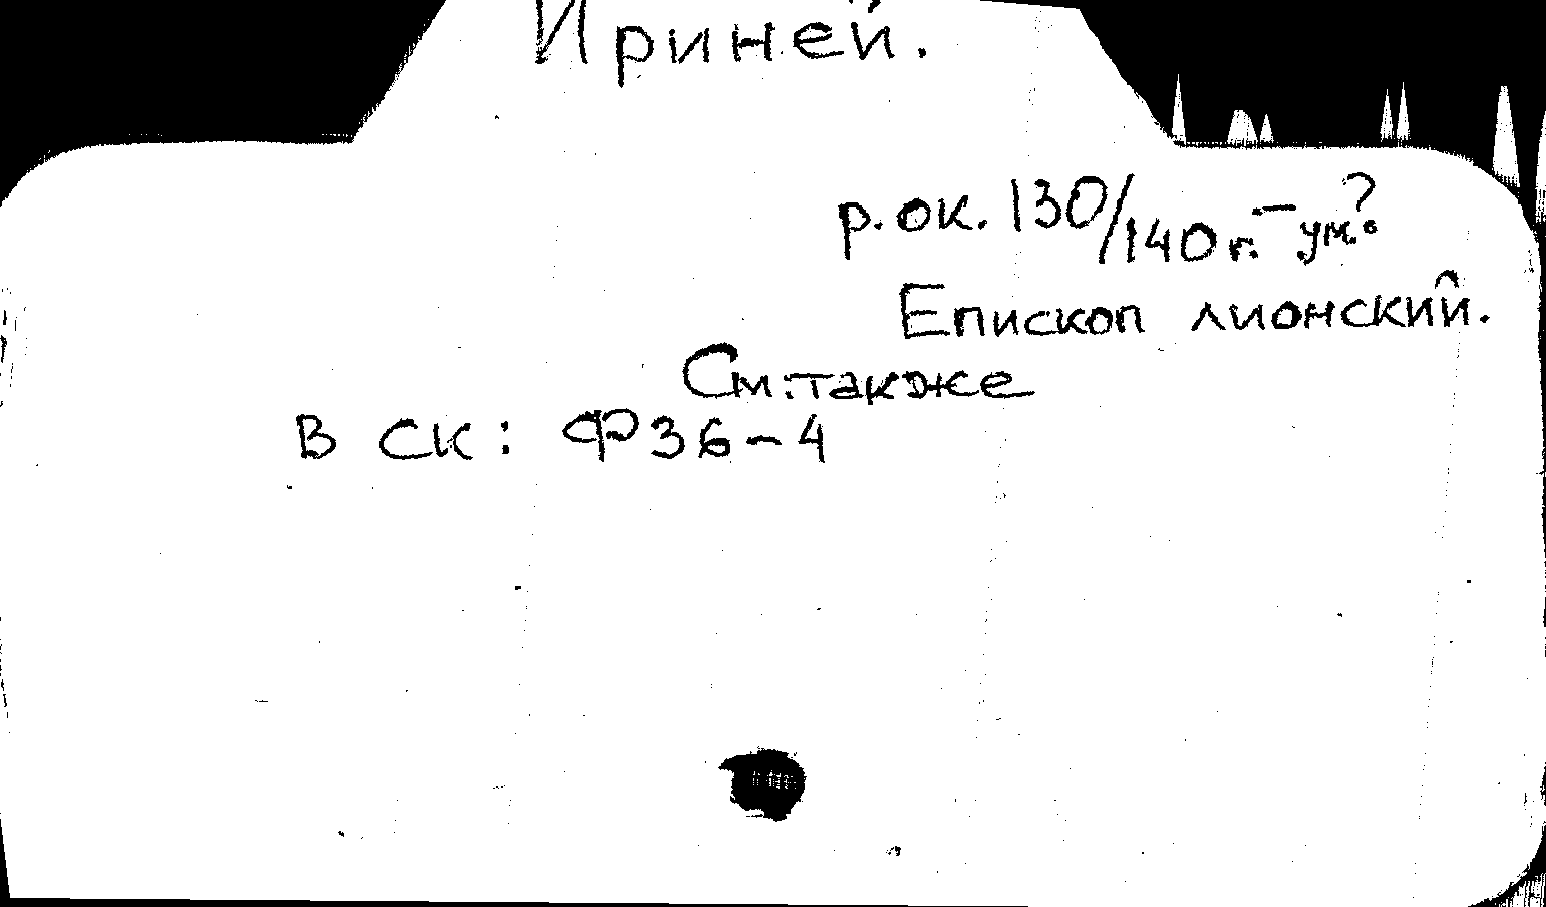 Ириней.
р. ок. 130/140 г. – ум. ?
Епископ лионский.
См. также
в СК: Ф36-4